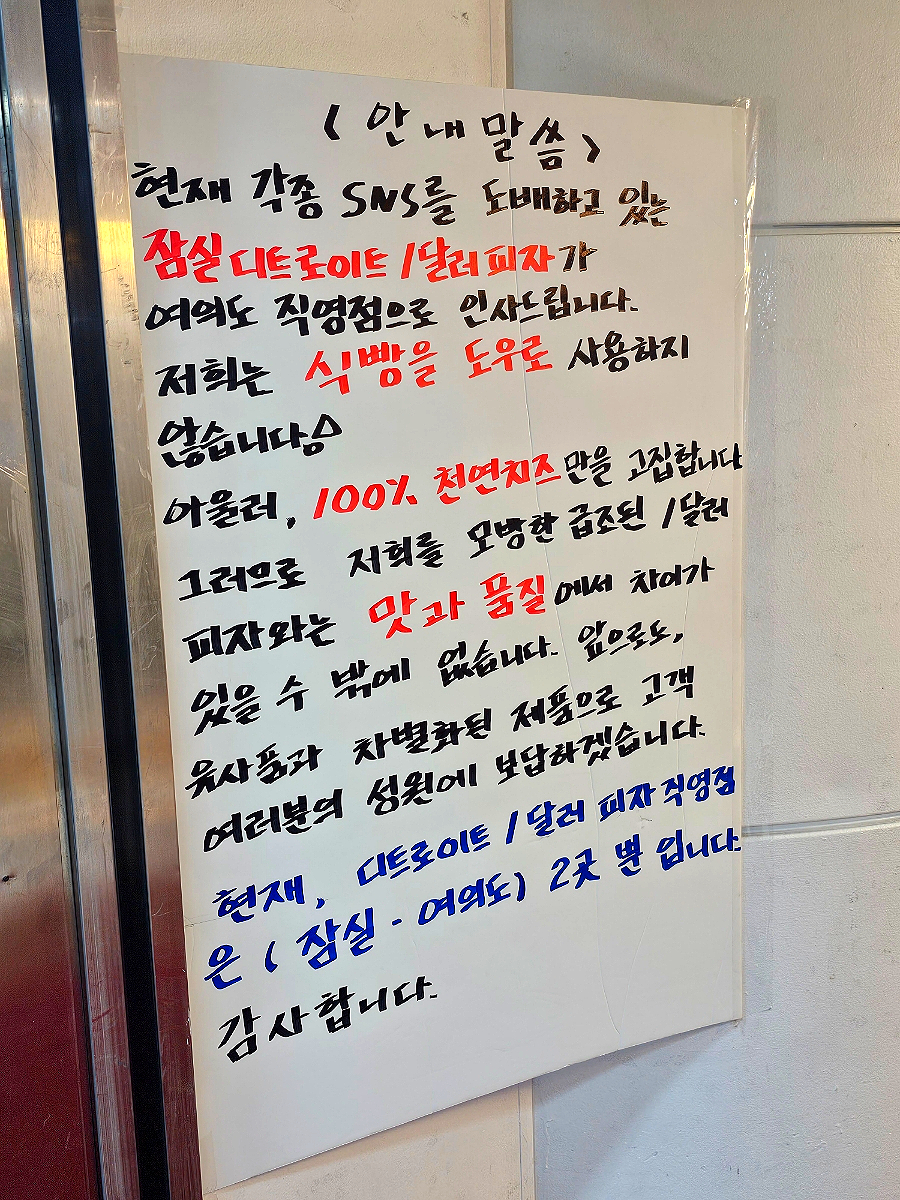 (안내말씀)
현재 각종 SNS를 도배하고 있는
잠실 디트로이트 1달러피자가
여의도 직영점으로 인사드립니다.
저희는 식빵을 도우로 사용하지
않습니다♤
아울러, 100% 천연치즈만을 고집합니다
그러므로 저희를 모방한 급조된 1달러
피자와는 맛과 품질에서 차이가
있을 수 밖에 없습니다. 앞으로도,
유사품과 차별화된 제품으로 고객
여러분의 성원에 보답하겠습니다.
현재, 디트로이트 1달러 피자 직영점
은 (잠실 - 여의도) 2곳 뿐 입니다.
감사합니다.